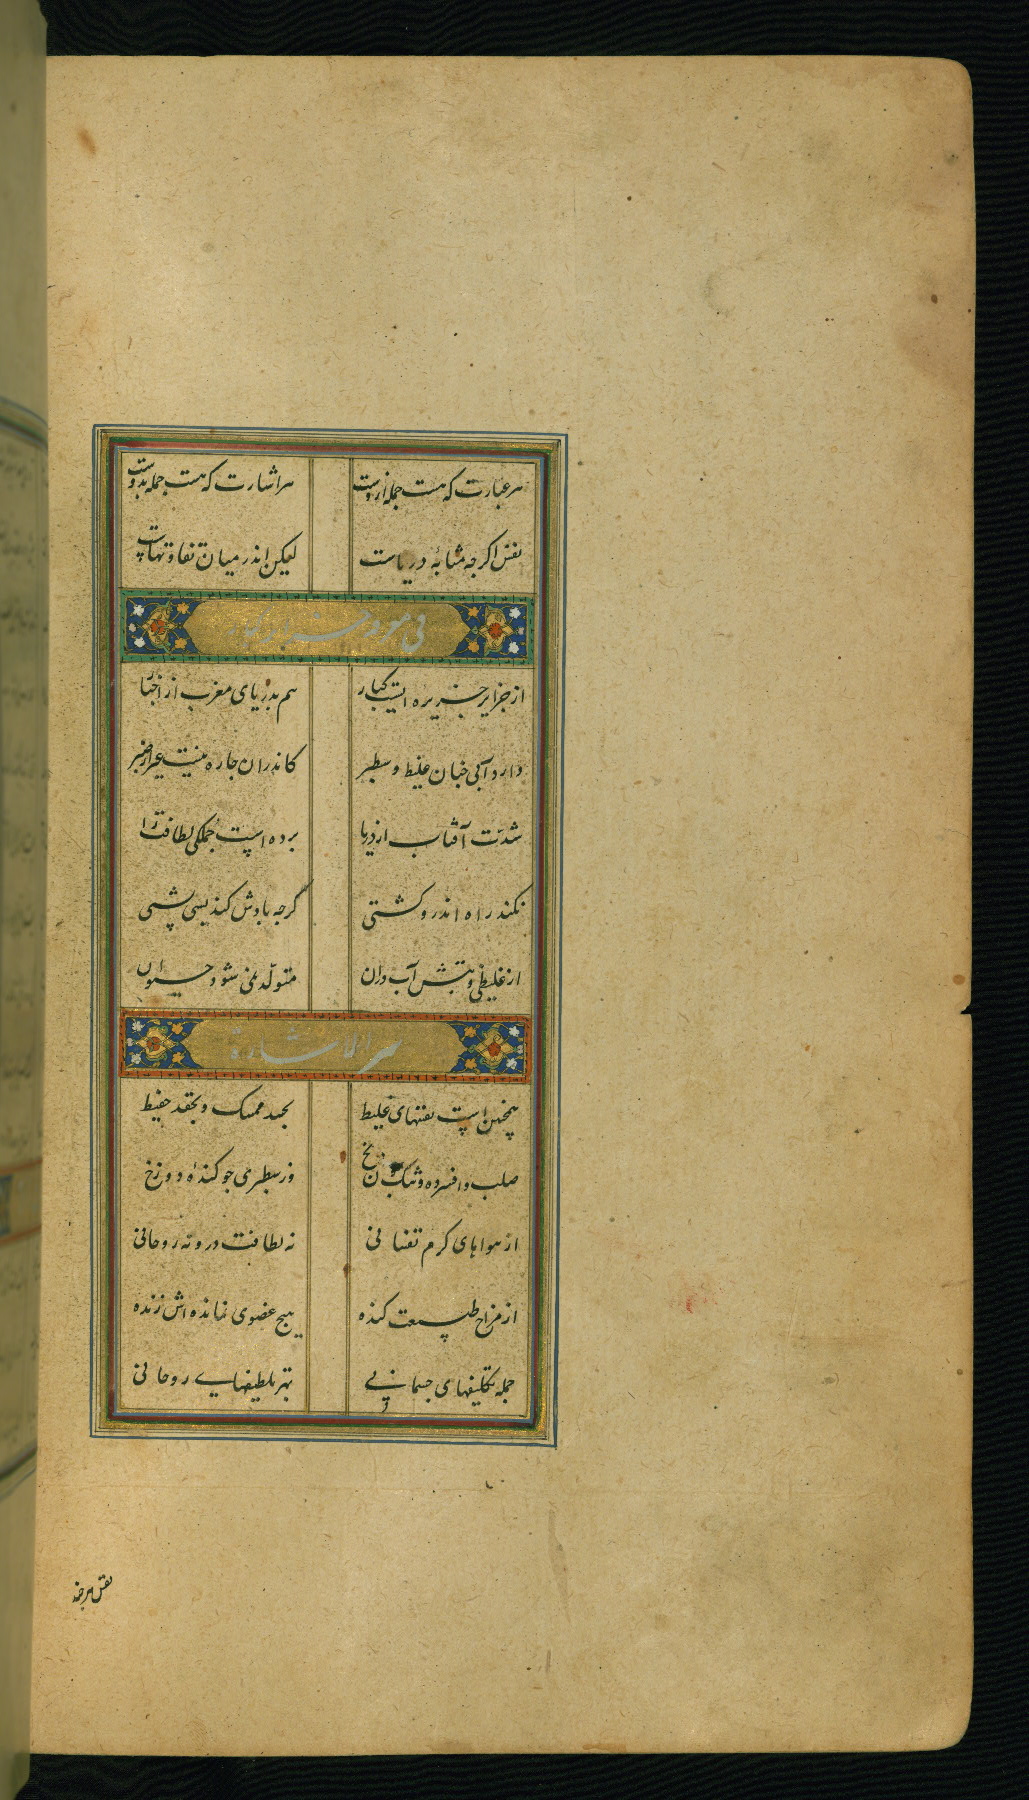 هر عبارت که هست جمله ازوست هر اشارت که هست جمله بدوست
نفس اکرجه مثابهٔ دریاست لیکن اندر میان تفاوتهاست
فی جزیره کبار
از جزایر جزیره ایست کبار هم بدریای مغرب از
دارد آبی جنان غلیظ و سطبر کاندران جاره نیست غیر از صبر
شدّت آفتاب از دریا برده است جملکی لطافت را
نکند راه اندرو کشتی کرجه بادش کند پشتی
از غلیظی و تبش آب دران متولّد نمی شود حیوان
سر الاشارة
همچنین است نفسهای غلیظ بجسد ممسک و بحقد حفیظ
صلب و افسرده و خنک جون یخ وز سطبری جو کندهٔ دوزخ
از هواهای کرم نفسانی نه لطافت درو نه روحانی
از مزاج طبیعت کنده هیچ عضوی نمانده اش زنده
جمله تکلیفهای جسمانی بتر بلطیفهای روحانی
نفس هرچند